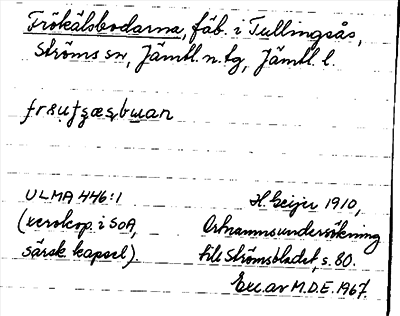 Frökälsbodarna, fäb. i Tullingsås,
Ströms sn, Jämtl. n. tg, Jämtl. l.
ULMA 446:1
(xerokop. i SOA,
särsk. kapsel).
H. Geijer 1910,
Ortnamnsundersökning
till Strömsbladet, s. 80.
Exc. av M.D.E. 1967.